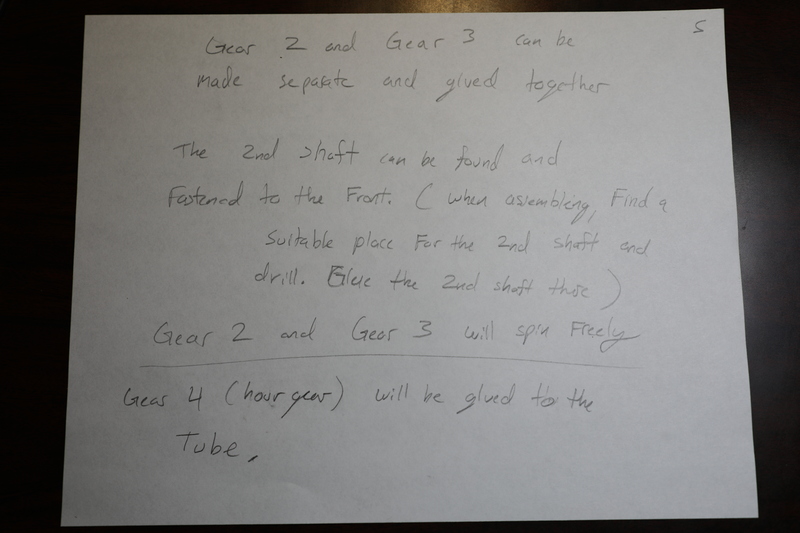 5
Gear 2 and Gear 3 can be
made separate and glued together
The 2nd shaft can be found and
Fastened to the Front. ( when assembling, Find a
suitable place For the 2nd shaft and
drill. Glue the 2nd shaft there )
Gear 2 and Gear 3 will spin Freely
Gear 4 (hour gear) will be glued to the
Tube.